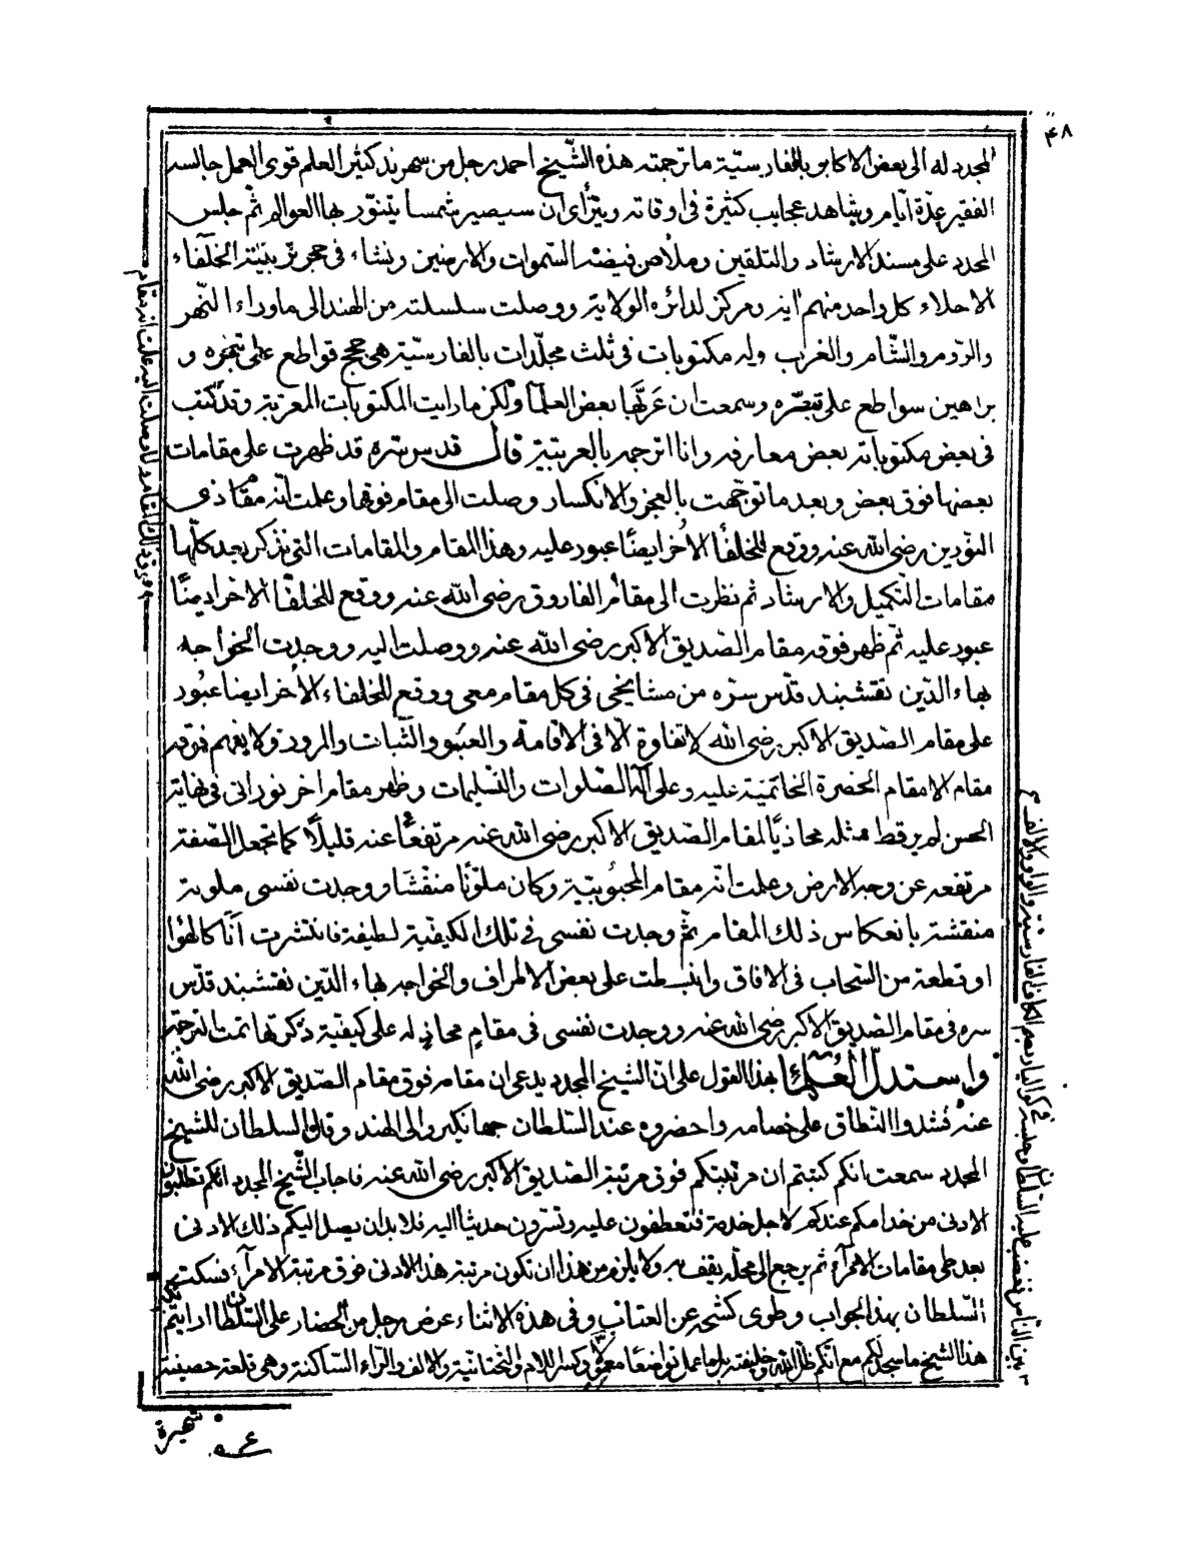 ۴۸
المجدد له الى بعض الاكابر بالفارسيّة ما ترجمته هذه الشّيخ احمد رجل من سهرند كثير العلم قوى العمل جالسه
الفقير عدّة ايّام ويشاهد عجايب كثيرة فى اوقاته ويترأى ان سيصير شمسا يتنوّر بها العوالم ثمّ جلس
المجدد على مسند الارشاد والتلقين وملأ من فيضه السّموات والارضين ونشاء فى حجر تربيته الخلفاء
الاجلاء كل واحد منهم اية ومركز لدائره الولاية ووصلت سلسلته من الهند الى ماوراء النّهر
والرّوم والشّام والغرب وله مكتوبات فى ثلث مجلّدات بالفارسيّة هى حجج قواطع على تبحّره و
براهين سواطع على تبصّره وسمعت ان عرّبها بعض العلما ولكن ما رايت المكتوبات المعربة وقد كتب
فى بعض مكتوباته بعض معارفه وانا اترجمه بالعربيّة قال قدس سره قد ظهرت على مقامات
بعضها فوق بعض وبعد ما توجّهت بالعجز والانكسار وصلت الى مقام فوقها وعلمت انّه مقام ذى
النّورين رضى الله عنه ووقع للخلفا الأخر ايضًا عبور عليه وهذا المقام والمقامات التى يذكر بعد كلّها
مقامات التكميل والارشاد ثم نظرت الى مقام الفاروق رضى الله عنه ووقع للخلفا الاخر ايضًا
عبور عليه ثمّ ظهر فوقه مقام الصّديق الاكبر رضى الله عنه ووصلت اليه ووجدت الخواجه
بهاء الدّين نقشبند قدّس سرّه من مشايخى فى كل مقام معى ووقع للخلفاء الأخر ايضا عبور
على مقام الصّديق الاكبر رضى الله لا تفاوة الّا فى الاقامة والعبور والثّبات والمرور ولا يفهم فوقه
مقام الا مقام الحضرة الخاتميّة عليه وعلى اله الصّلوات والتّسليمات وظهر مقام اخر نورانى فى نهاية
الحسن لم ير قط مثله محاذيًا لمقام الصّديق الاكبر رضى الله عنه مرتفعًا عنه قليلًا كما تجعل الصّفة
مرتفعه عن وجه الارض وعلمت انّه مقام المحبوبيّة وكان ملوّنًا منقّشًا ووجدت نفسى ملونة
منقشة بانعكاس ذلك المقام ثمّ وجدت نفسى فى تلك الكيفيّة لطيفة فانتشرت انّا كالهوا
او قطعة من السّحاب فى الافاق وانبسطت على بعض الاطراف والخواجه بهاء الدّين نقشبند قدّس
سره فى مقام الصّديق الاكبر رضى الله عنه ووجدت نفسى فى مقام محاذٍ له على كيفيّة ذكرتها تمت الترجمة
واستدلّ العلما بهذا القول على انّ الشّيخ المجدد يدعى ان مقامه فوق مقام الصّديق الاكبر رضى الله
عنه فشدوا النّطاق على خصامه واحضروه عند السّلطان جهانكير والى الهند وقال السلطان للشّيخ
المجدد سمعت انكم كتبتم ان مرتبتكم فوق مرتبة الصّديق الاكبر رضى الله عنه فاجاب الشّيخ المجدد انكم تطلبون
الادنى من خدامكم عندكم لاجل خدمة فتعطفون عليه وتسرّون حديثا اليه فلابد ان يصل اليكم ذلك الادنى
بعد طى مقامات الامرآء ثم يرجع الى محلّه يقف به ولا يلزم من هذا ان تكون مرتبة هذا الادنى فوق مرتبة الامرآء فسكت
السّلطان بهذا الجواب وطوى كشحه عن العتاب وفى هذه الاثناء عرض رجل من الحضار على السّلطان ارايتم
هذا الشّيخ ما سجد لكم مع انّكم ظلّ الله وخليفته بل ما عمل تواضعًا وكسر اللام والتحتانية والالف والرّاء السّاكنة وهى قلعة حصينة
شهيرة
فوق ذلك المقام ولما وصلت اليه علمت انه مقام
بين النّاس فغضب عليه السّلطان وحبسه فى كواليار بضم الكاف الفارسيّة والواو والالف